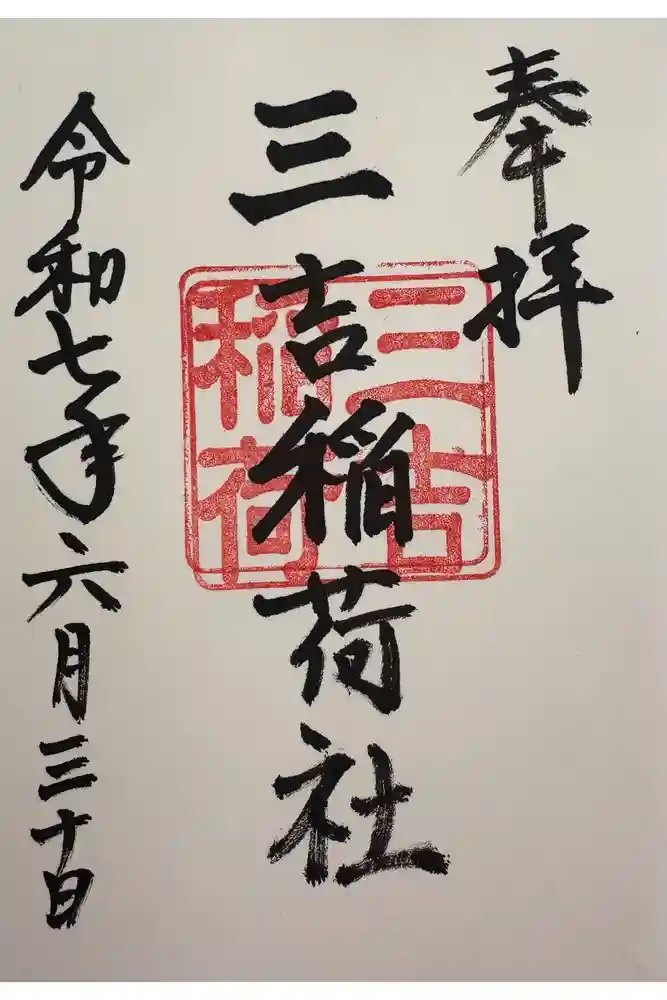 奉拝
三吉稲荷社
三吉
稲荷
令和七年六月三十日